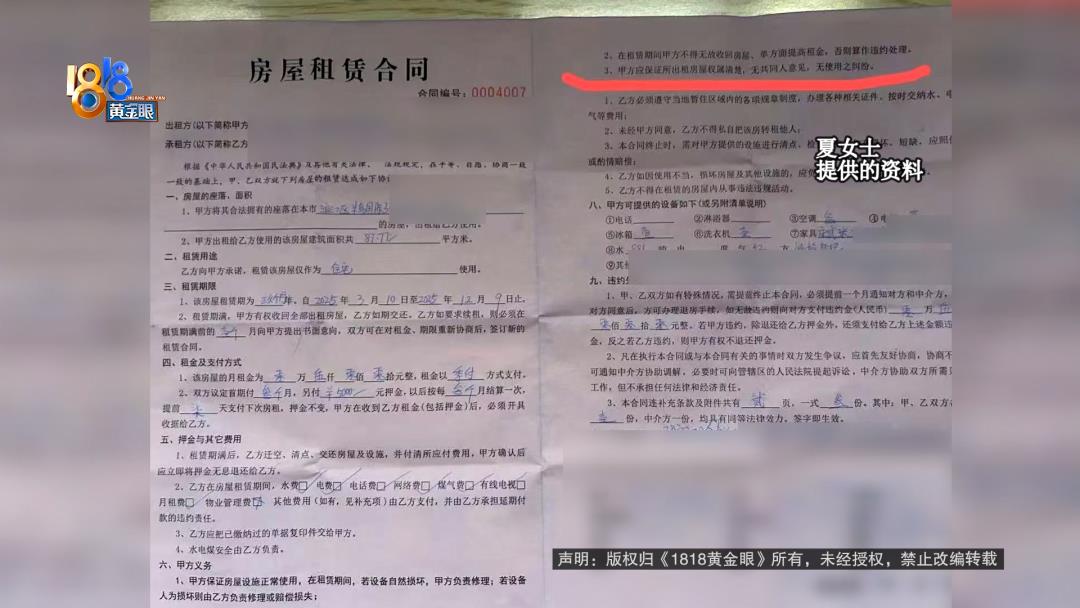 1818
HUANG JIN YAN
黄金眼
房屋租赁合同
合同编号：0004007
出租方(以下简称甲方
承租方(以下简称乙方
根据《中华人民共和国民法典》及其他有关法律、法规规定，在平等、自愿、协商一致
一致的基础上，甲、乙双方就下列房屋的租赁达成如下协
一、房屋的座落、面积
1、甲方将其合法拥有的座落在本市
的房屋，出租给乙方使用。
2、甲方出租给乙方使用的该房屋建筑面积共 平方米。
二、租赁用途
乙方向甲方承诺，租赁该房屋仅作为 住宅 使用。
三、租赁期限
1、该房屋租赁期为 年。自2025年3月10日至2025年12月9日止。
2、租赁期满，甲方有权收回全部出租房屋，乙方如期交还。乙方如要求续租，则必须在
租赁期满前的 个月向甲方提出书面意向，双方可在对租金、期限重新协商后，签订新的
租赁合同。
四、租金及支付方式
1、该房屋的月租金为 零 万 伍 仟 零 佰 零 拾元整，租金以 季付 方式支付。
2、双方议定首期付 叁个 月，另付 ¥5000 元押金，以后按每 叁个 月结算一次，
提前 天支付下次房租，押金不变，甲方在收到乙方租金(包括押金)后，必须开具
收据给乙方。
五、押金与其它费用
1、租赁期满后，乙方迁空、清点、交还房屋及设施，并付清所应付费用，甲方确认后
应立即将押金无息退还给乙方。
2、乙方在房屋租赁期间，水费□ 电费□ 电话费□ 网络费□ 煤气费□ 有线电视□
月租费□ 物业管理费□ 其他费用(如有，见补充项)由乙方支付，并由乙方承担延期付
款的违约责任。
3、乙方应把已缴纳过的单据复印件交给甲方。
4、水电煤安全由乙方负责。
六、甲方义务
1、甲方保证房屋设施正常使用，在租赁期间，若设备自然损坏，甲方负责修理；若设备
人为损坏则由乙方负责修理或赔偿损失；
2、在租赁期间甲方不得无故收回房屋、单方面提高租金，否则算作违约处理。
3、甲方应保证所出租房屋权属清楚，无共同人意见，无使用之纠纷。
1、乙方必须遵守当地暂住区域内的各项规章制度，办理各种相关证件、按时交纳水、电
气等费用；
2、未经甲方同意，乙方不得私自把该房转租他人；
3、本合同终止时，需对甲方提供的设施进行清点、检 坏、短缺、应照
或酌情赔偿；
4、乙方如因使用不当，损坏房屋及其他设施的，应负
5、乙方不得在租赁的房屋内从事违法违规活动。
八、甲方可提供的设备如下(或另附清单说明)
①电话 ②淋浴器 ③空调 ④电
⑤冰箱 壹 ⑥洗衣机 壹 ⑦家具
⑧水
⑨其
九、违约
1、甲、乙双方如有特殊情况，需提前终止本合同，必须提前一个月通知对方和中介方，
对方同意后，方可办理退房手续，如无故违约则向对方支付违约金(人民币) 零 万 伍
零 佰 零 拾 零 元整。若甲方违约，除退还给乙方押金外，还须支付给乙方上述金额违
金，反之若乙方违约，则甲方有权不退还押金。
2、凡在执行本合同或与本合同有关的事情时双方发生争议，应首先友好协商，协商不
可通知中介方协助调解，必要时可向管辖区的人民法院提起诉讼，中介方协助双方所需
工作，但不承担任何法律和经济责任。
3、本合同连补充条款及附件共有 贰 页，一式 叁 份。其中：甲、乙双方
壹 份，中介方一份，均具有同等法律效力。签字即生效。
夏女士
提供的资料
声明：版权归《1818黄金眼》所有，未经授权，禁止改编转载